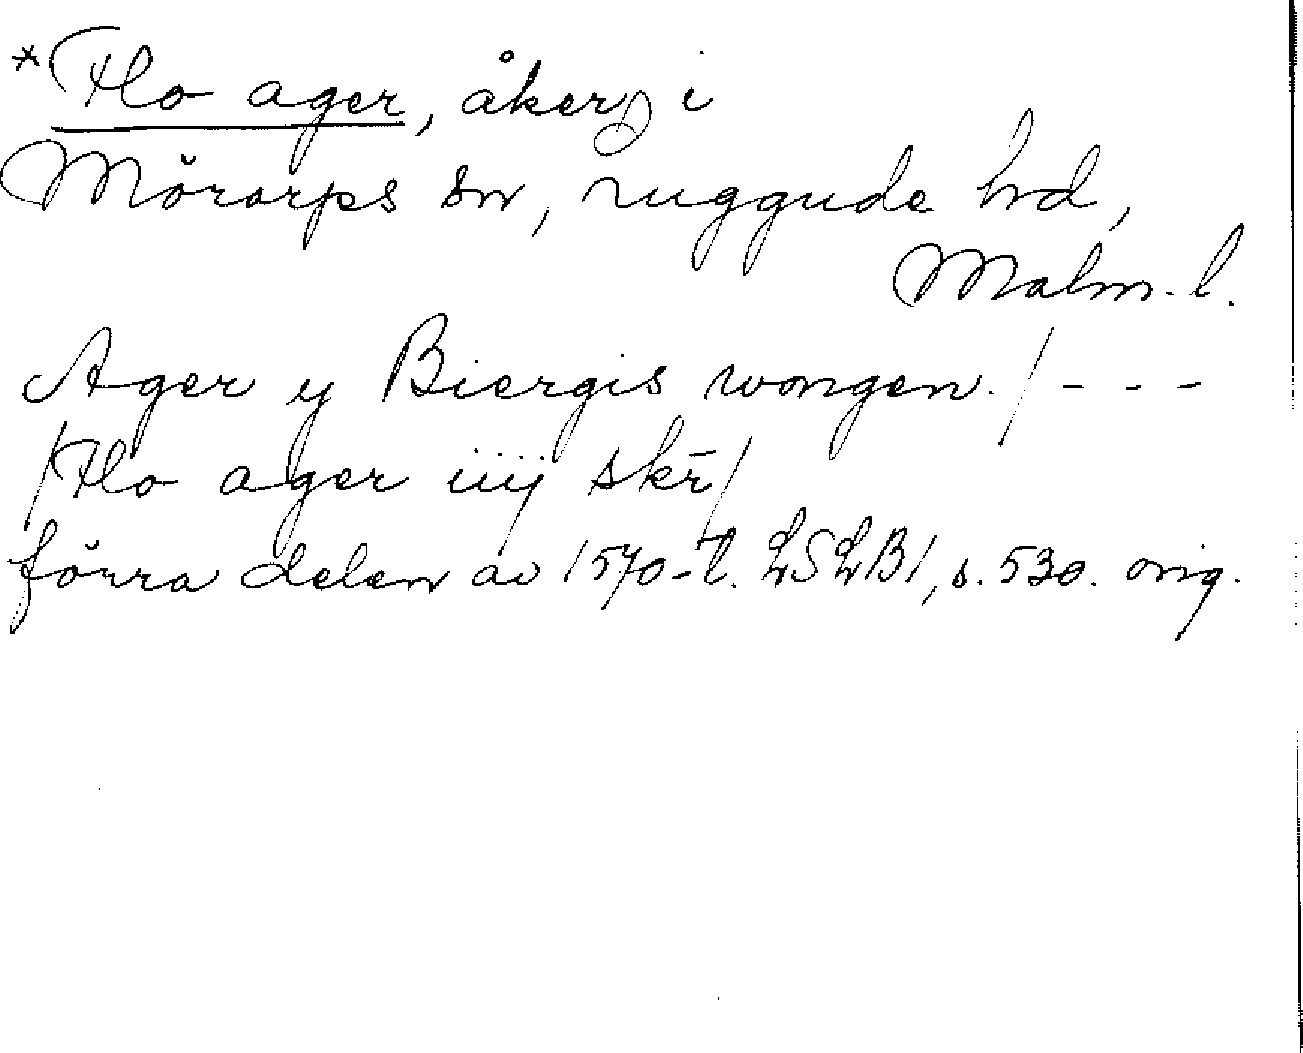 *Flo ager, åker, i
Mörarps sn, Luggude hd,
Malm. l.
Ager y Biergis wongen. / - - -
/ Flo ager iiij skr̄ /
förra delen av 1570-t. LSLB1, s. 530. orig.